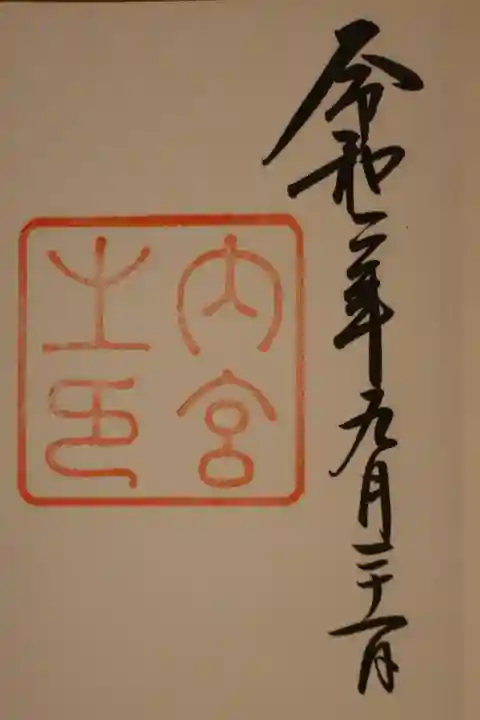 令和二年九月二十一日
内宮
之印